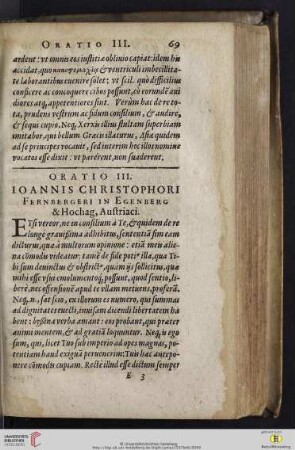 ORATIO III. 69
ardent: ut omnis eos iustitiæ oblivio capiat: idem his
accidat, & ventriculi imbecillitate
laborantibus evenire solet: ut scil. quò difficilius
conficere ac concoquere cibos possunt, eò eorundē avi
diores atq; appetentiores sint. Verùm hac de re to-
ta, prudens vestrum ac fidum consilium, & audire,
& sequi cupio. Neq; Xerxis illius stultam superbiam
imitabor, qui bellum Græcis illaturus, Asiæ quidem
ad se principes vocavit, sed interim hec illos nomine
vocatos esse dixit: ut parerent, non suaderent.
ORATIO III.
IOANNIS CHRISTOPHORI
FERNBERGERI IN EGENBERG
& Hochag, Austriaci.
ETsi vereor, ne in consilium à Te, & quidem de re
longè gravissima adhibitus, sententiā sim eam
dicturus, quæ à multorum opinione: etiā meis alie-
na cōmodis videatur: tamē de fide poti9 illa, qua Ti-
bi sum devinctus & obstrict9, quàm ijs sollicitus, quæ
mihi esse usui emolumentoq; possunt, quod sentio, li-
berè, nec offensionē apud te ullam metuens, proferā.
Neq; n., sat scio, ex illorum es numero, qui summas
ad dignitates evecti, invisam dicendi libertatem ha
bent: byssina verba amant: eos probant, qui præter
animi mentem, & ad gratiā loquuntur. Neq; is ego
sum, qui, licet Tuo sub imperio ad opes magnas, po-
tentiam haud exiguā pervenerim: Tuis hæc antepo-
nere cōmodis cupiam. Rectè illud esse dictum semper
E 3
UNIVERSITÄTS-
BIBLIOTHEK
HEIDELBERG
© Universitätsbibliothek Heidelberg